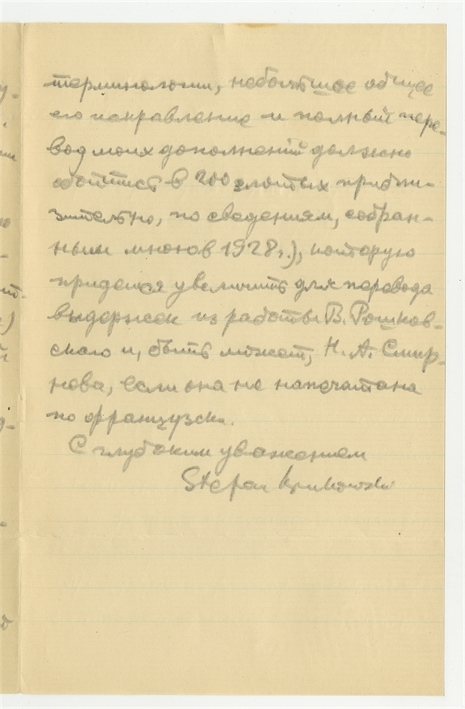 терминологии, небольшое общее
его исправление и полный пере-
вод моих дополнений должно
обойтись в 200 злотых приблизи-
зительно, по сведениям, собран-
ным мною в 1928 г.), которую
придется увеличить для перевода
выдержек из работы В. Рошков-
скаго и, быть может, Н. А. Смир-
нова, если она не напечатана
по французски.
С глубоким уважением
Stefan Krukowski